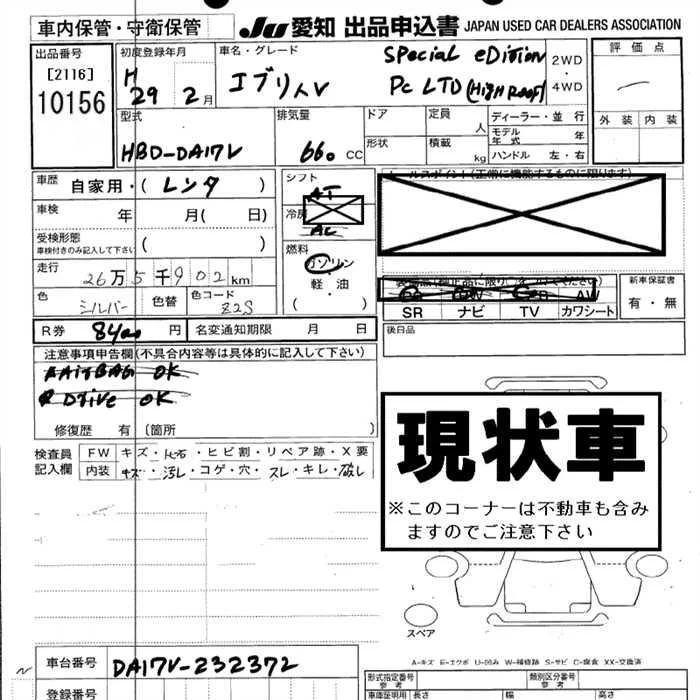 車内保管・守衛保管 JU 愛知 出品申込書 JAPAN USED CAR DEALERS ASSOCIATION
出品番号 [2116] 10156
初度登録年月 H 29 年 2 月
車名・グレード エブリィV Special eDition PC LTD (High Roof) 2WD・4WD
評価点
外装 内装
型式 HBD-DA17V
排気量 660 CC
ドア 定員 人
形状 積載 kg
ディーラー・並行
モデル年式 年
ハンドル 左・右
車歴 自家用・( レンタ )
シフト AT
セールスポイント(正常に機能するものに限ります)
車検 年 月( 日)
冷房 AC
受検形態 車検付きのみ記入して下さい ( )
燃料 ガソリン・軽・油 ( )
走行 26万5千902km
色 シルバー 色替 色コード Z2S
SR ナビ TV カワシート
新車保証書 有・無
R券 円 名変通知期限 月 日
後日品
注意事項申告欄(不具合内容等は具体的に記入して下さい)
AirBAG OK
Drive OK
修復歴 有(箇所 )
検査員記入欄 FW キズ・ヒビ割・リペア跡・X要
内装 キズ・汚レ・コゲ・穴・スレ・キレ・破レ
現状車
※このコーナーは不動車も含み
ますのでご注意下さい
スペア
A-キズ E-エクボ U-凹み W-補修跡 S-サビ C-腐食 XX-交換済
車台番号 DA17V-232372
登録番号
型式指定番号 参考 類別区分番号 参考
車庫証明用 長さ 幅 高さ